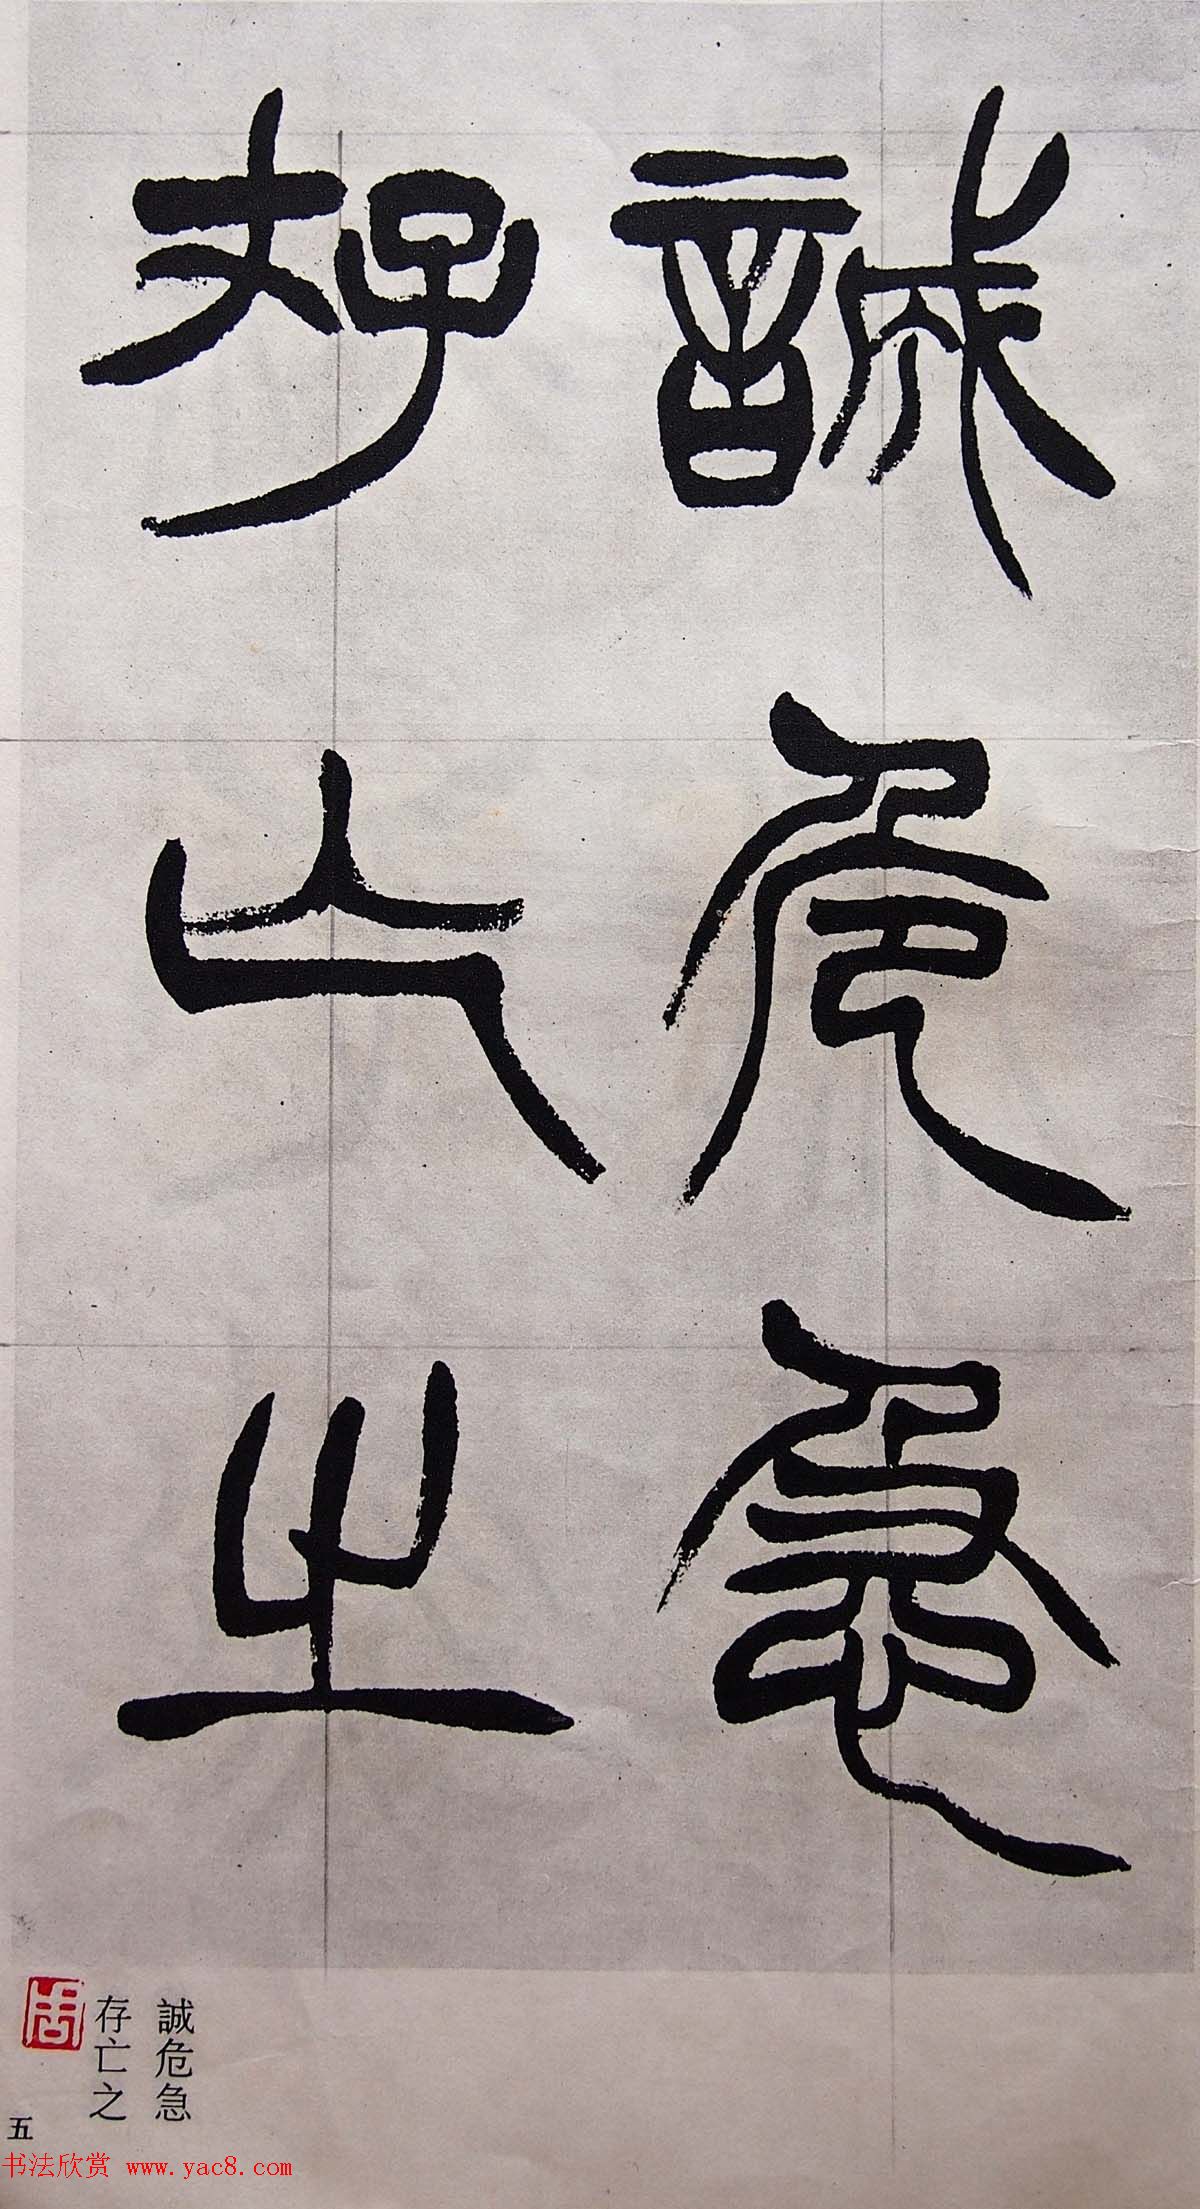 誠危急
存亡之
誠危急
存亡之
五
书法欣赏 www.yac8.com